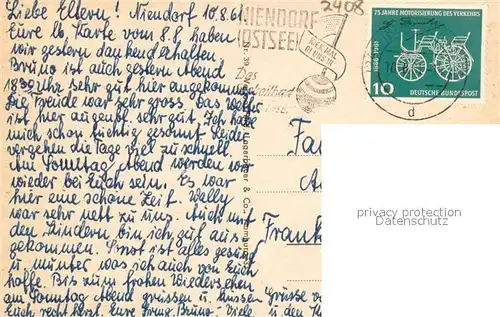 Liebe Eltern! Niendorf 10.8.61
Eure lb. Karte vom 8.8. haben
wir gestern dankend erhalten
Bruno ist auch gestern Abend
18 30 Uhr sehr gut hier angekommen.
Die Freude war sehr gross. Das Wetter
ist hier augenbl. sehr gut. Ich habe
mich schon tüchtig gesonnt. Leider
vergehen die Tage viel zu schnell.
Am Sonntag Abend werden wir
wieder bei Euch sein. Es war
hier eine schöne Zeit. Wally
war sehr nett zu uns. Auch mit
den Kindern bin ich gut aus-
gekommen. Sonst ist alles gesund
u. munter was ich auch von Euch
hoffe. Bis zum frohen Wiedersehen
am Sonntag Abend grüssen u. küssen
Euch recht herzl. Eure Irmg. Bruno. Viele
Grüsse
u. den
2408
NIENDORF
(OSTSEE)
Das
Nr. 30
& Co., Hamburg
75 JAHRE MOTORISIERUNG DES VERKEHRS
1886-1961
10
DEUTSCHE BUNDESPOST
d
Fa
Frank
privacy protection
Datenschutz